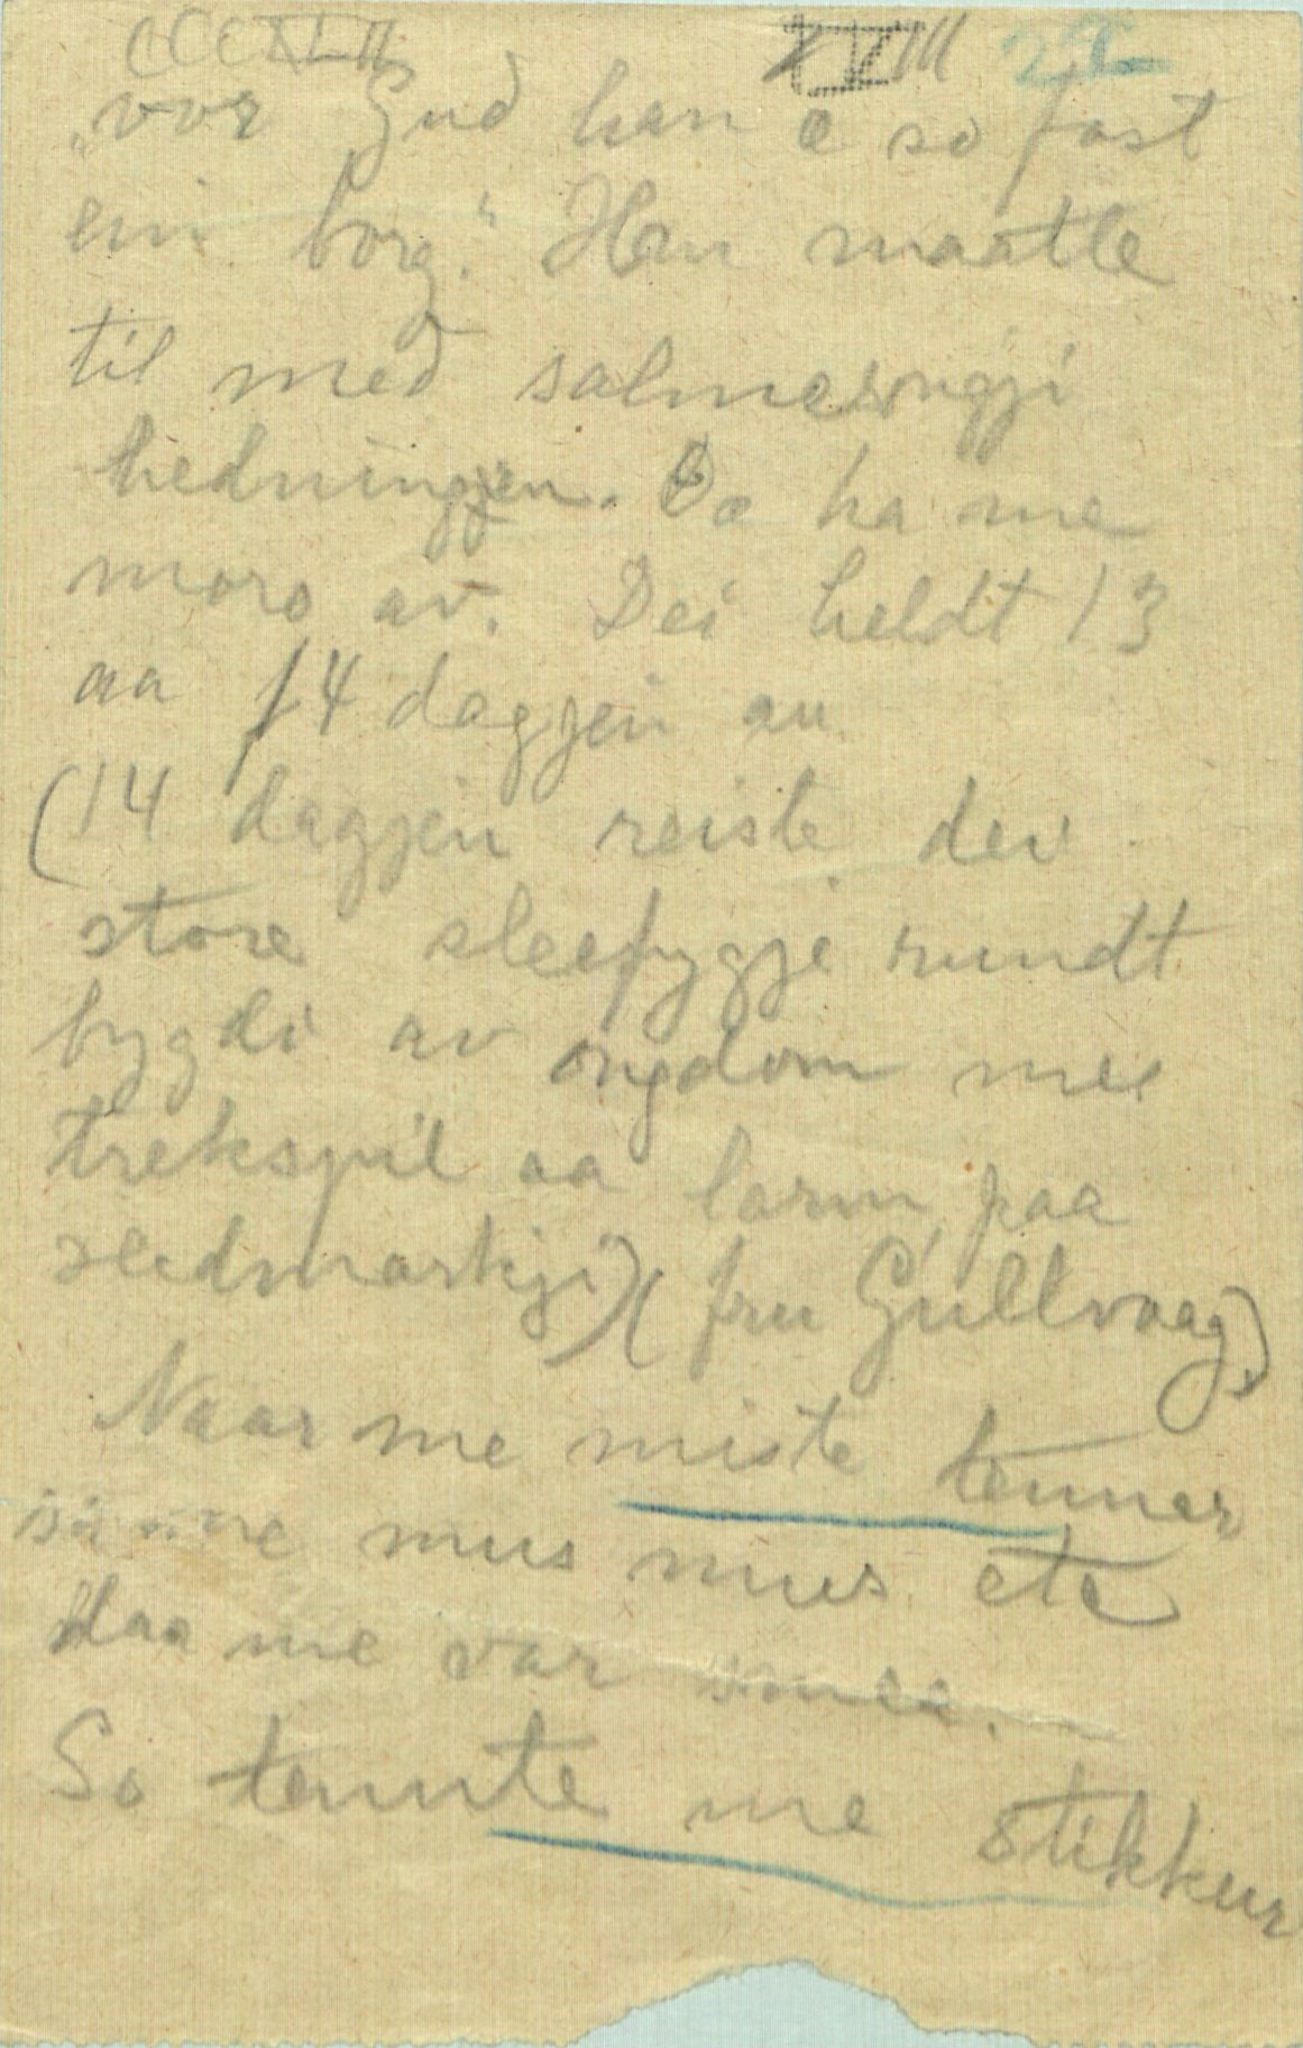 CCCXLII XVIII 22
"vor Gud han e so fast
ein borg." Han maatte
til med salmesongji
hedningjen. Da ha me
moro av. Dei heldt 13
aa 14 dagjen au
(14 dagjen reiste dei
store sleefygje rundt
bygdi av ongdom mee
trekspil aa larm paa
sledmarkji) (fru Gullvaag)
Naar me miste tenner
me mus mus ete
daa me var
So tennte me stikkur